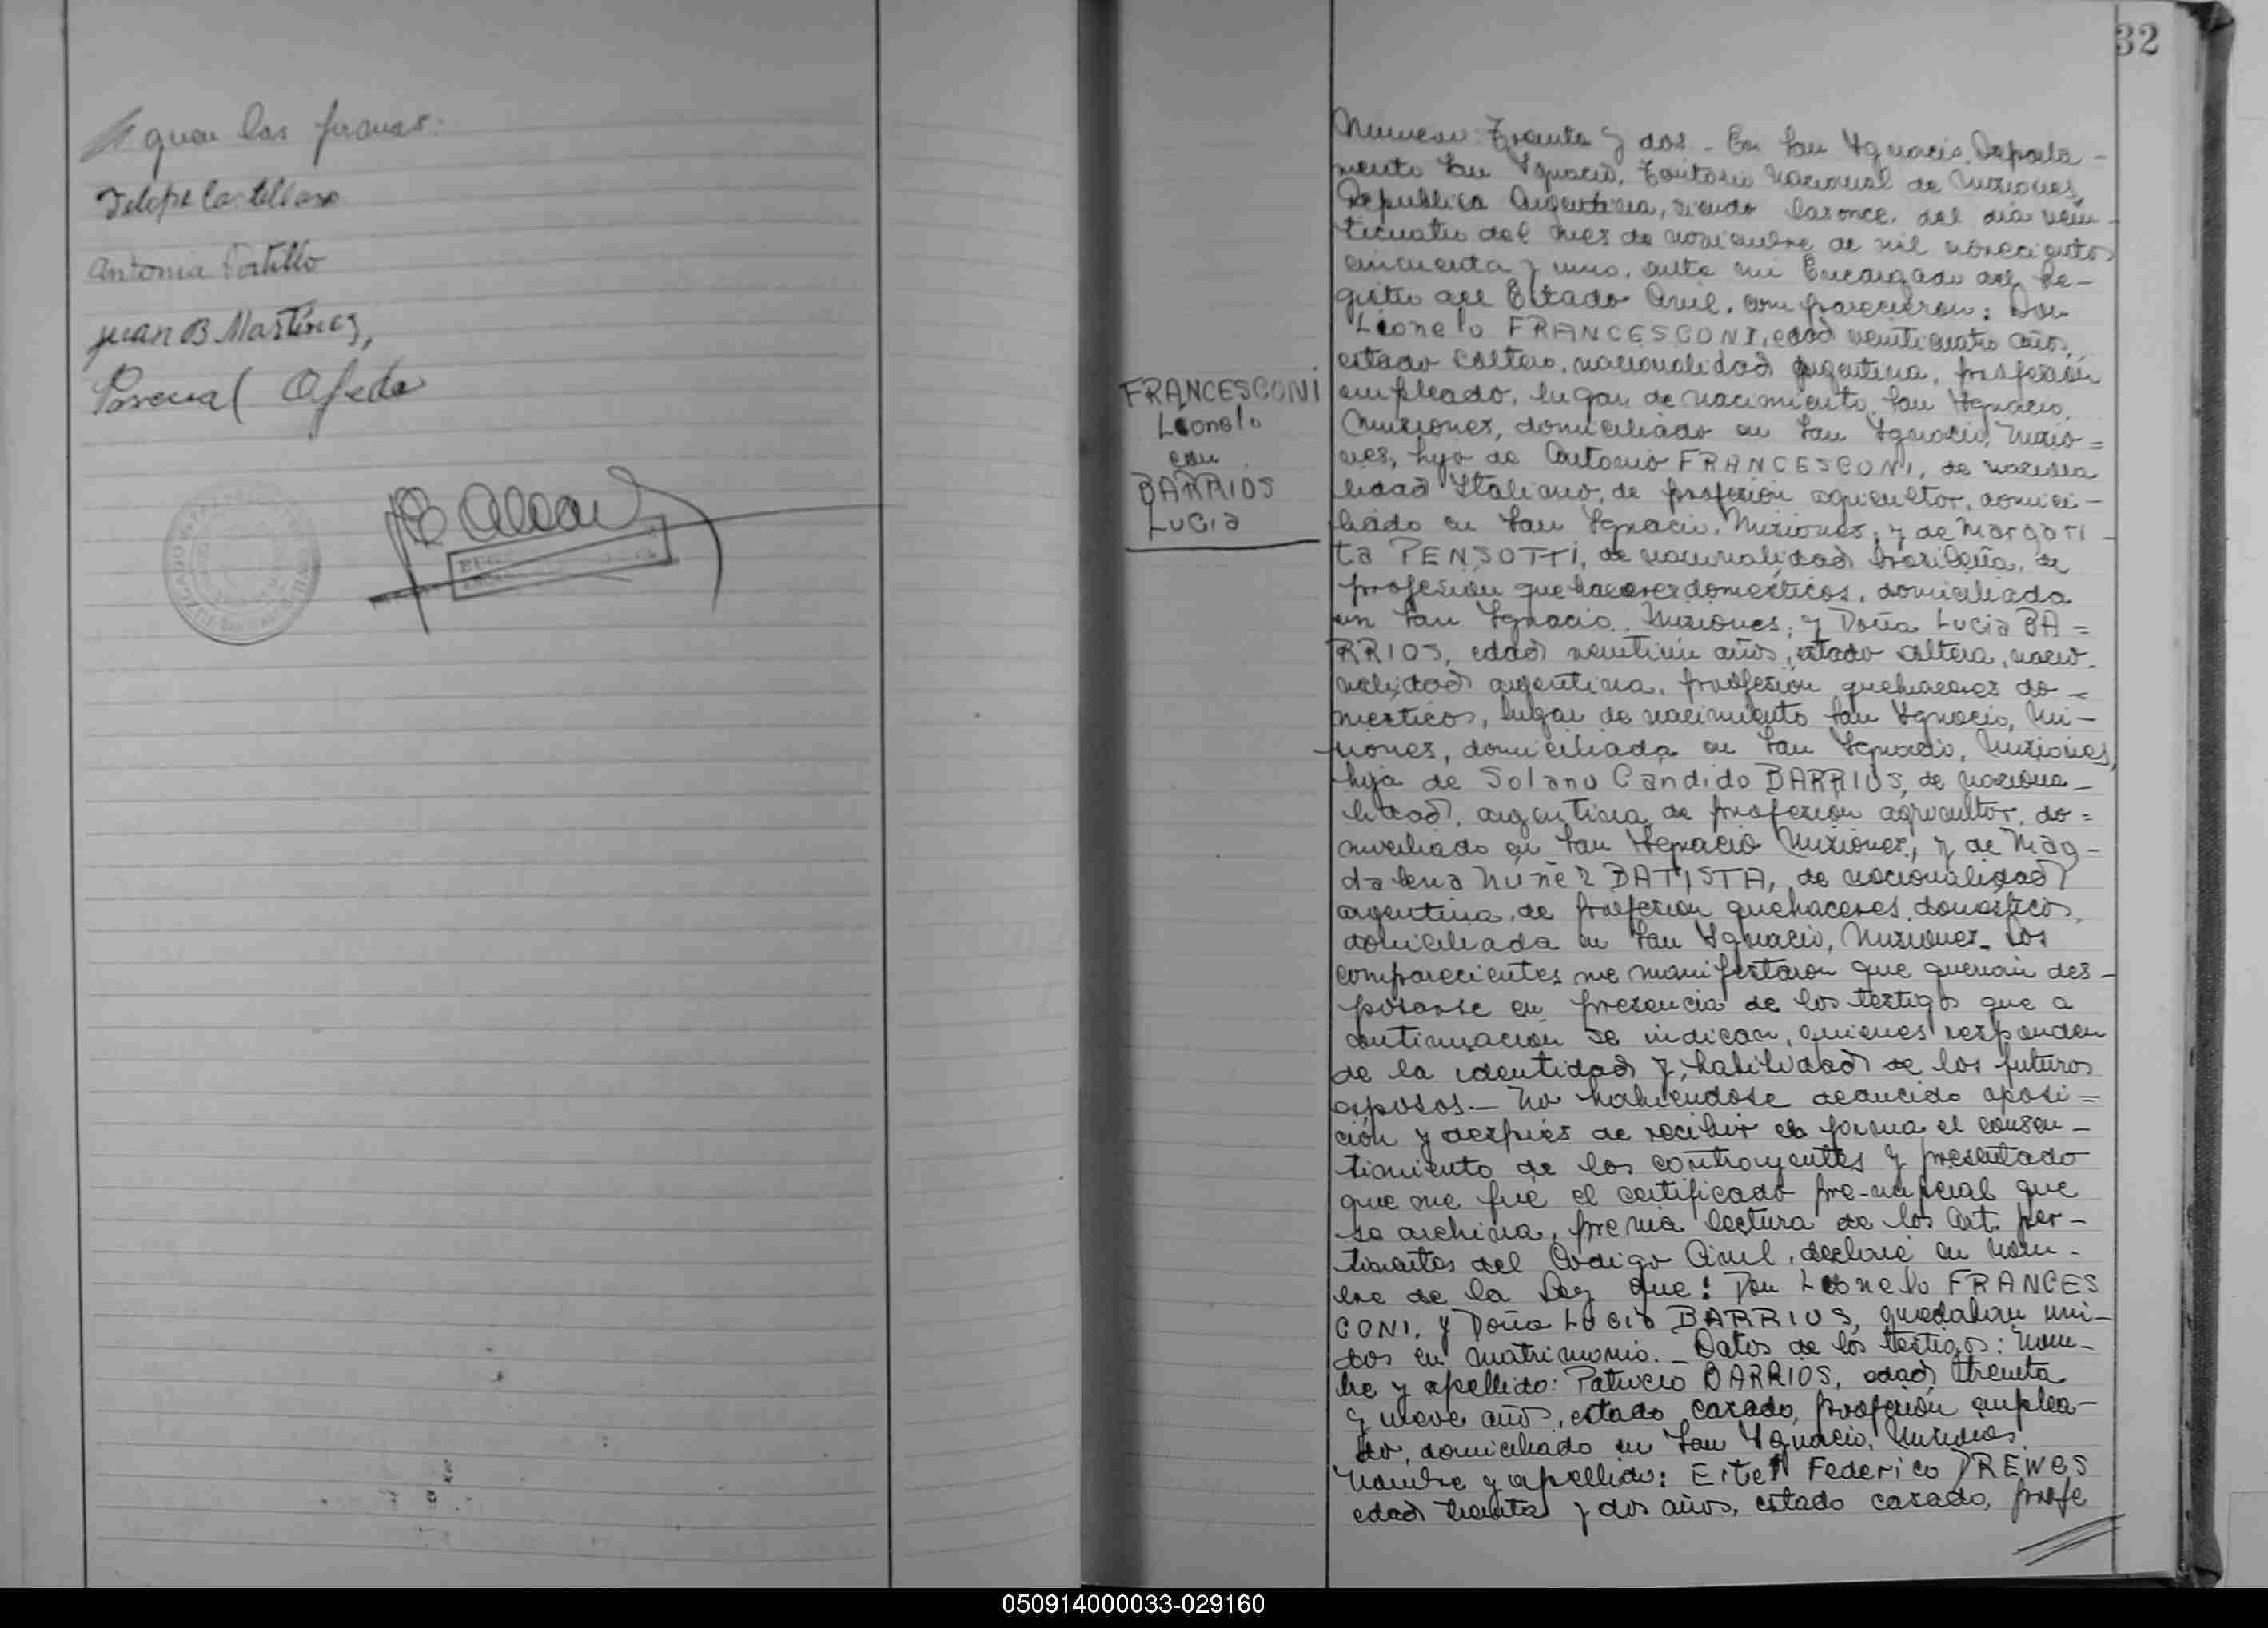 Siguen las firmas:
Felipe Castellano
Antonia Portillo
Juan B Martinez,
Pascual Ojeda
32
FRANCESCONI
Leonelo
con
BARRIOS
Lucia
Numero: Treinta y dos - En San Ygnacio, Departa-
mento San Ygnacio, Territorio Nacional de Misiones,
Republica Argentina, siendo las once, del dia vein-
ticuatro del mes de noviembre de mil novecientos
cincuenta y uno, ante mi Encargado del Re-
gistro del Estado Civil, comparecieron: Don
Leonelo FRANCESCONI, edad veinticuatro años,
estado soltero, nacionalidad argentina, profesión
empleado, lugar de nacimiento San Ygnacio,
Misiones, domiciliado en San Ygnacio, Misio=
nes, hijo de Antonio FRANCESCONI, de naciona
lidad Italiano, de profesión agricultor, domici-
liado en San Ygnacio, Misiones, y de Margari-
ta PENSOTTI, de nacionalidad brasileña, de
profesión quehaceres domesticos, domiciliada
en San Ygnacio, Misiones; y Doña Lucia BA=
RRIOS, edad veintiun años, estado soltera, nacio-
nalidad argentina, profesión quehaceres do-
mesticos, lugar de nacimiento San Ygnacio, Mi-
siones, domiciliada en San Ygnacio, Misiones,
hija de Solano Candido BARRIOS, de naciona-
lidad, argentina de profesión agricultor, do=
miciliado en San Ygnacio Misiones, y de Mag-
dalena Núñez BATISTA, de nacionalidad
argentina, de profesion quehaceres domesticos,
domiciliada en San Ygnacio, Misiones. Los
comparecientes me manifestaron que querian des-
posarse en presencia de los testigos que a
continuación se indican, quienes responden
de la identidad y habilidad de los futuros
esposos.- No habiendose deducido oposi=
ción y después de recibir en forma el consen-
timiento de los contrayentes y presentado
que me fué el certificado pre-nupcial que
se archiva, previa lectura de los Art. per-
tinentes del Codigo Civil, declaré en nom-
bre de la Ley que: Don Leonelo FRANCES
CONI, y Doña Lucia BARRIOS, quedaban uni-
dos en matrimonio.- Datos de los testigos: Nom-
bre y apellido: Patricio BARRIOS, edad treinta
y nueve años, estado casado, profesión emplea-
do, domiciliado en San Ygnacio, Misiones
Nombre y apellido: Eitel Federico DREWES
edad treinta y dos años, estado casado, profe
050914000033-029160